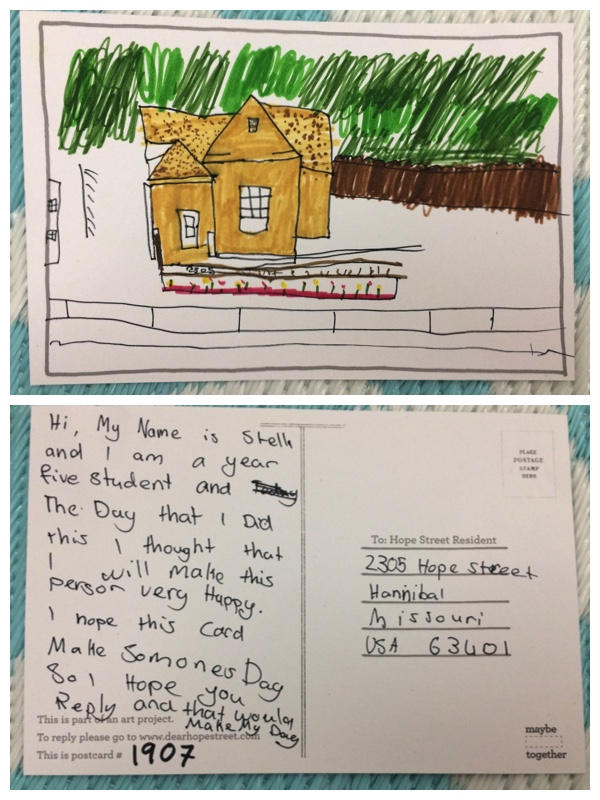 2305
Hi, My Name is Stella
and I am a year
five student and
The Day that I Did
this I thought that
I will make this
person very Happy.
I hope this Card
Make Somones Day
So I Hope you
Reply and that would
Make My Day
This is part of an art project.
To reply please go to www.dearhopestreet.com
This is postcard # 1907
PLACE
POSTAGE
STAMP
HERE
To: Hope Street Resident
2305 Hope street
Hannibal
Missouri
USA 63401
maybe
together